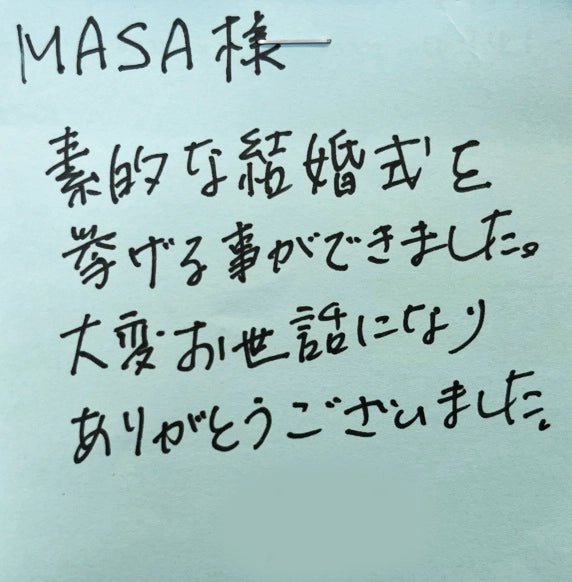 MASA様
素的な結婚式を
挙げる事ができました。
大変お世話になり
ありがとうございました。